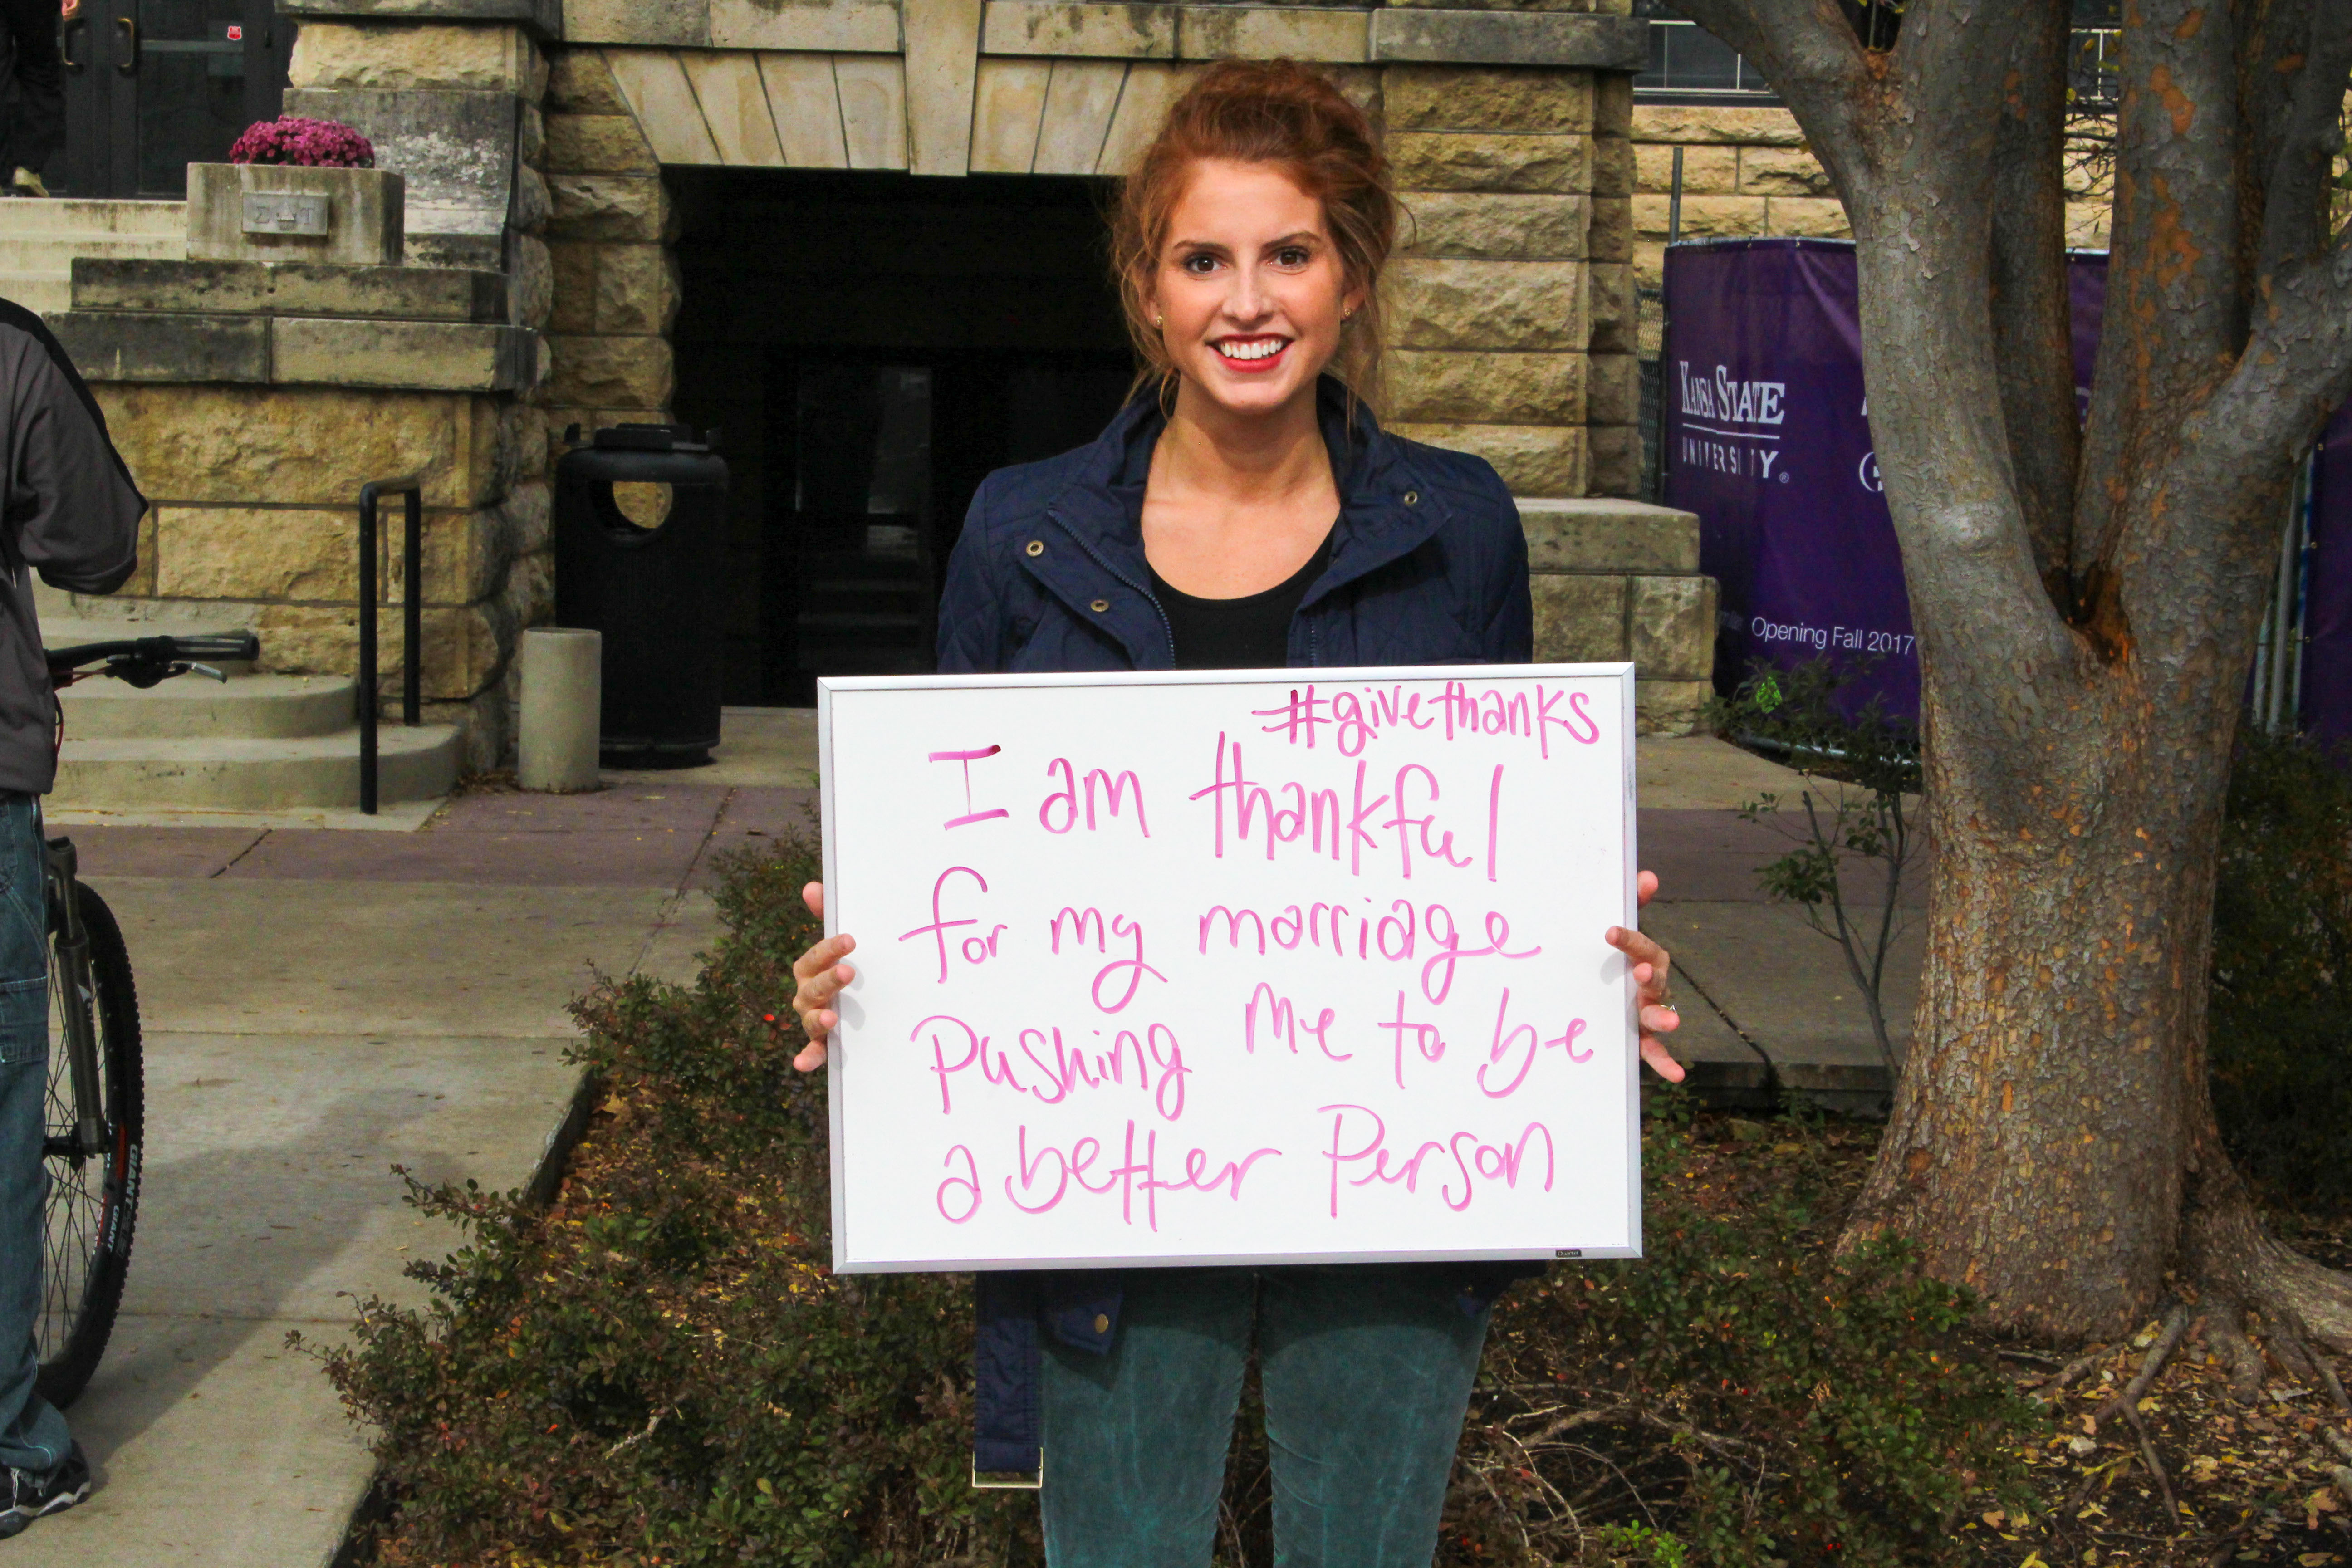 ΣΔΤ
KANSA STATE
UNIVERSITY
Opening Fall 2017
#givethanks
I am thankful
for my marriage
Pushing me to be
a better Person
Quartet
GIANT
GIANT